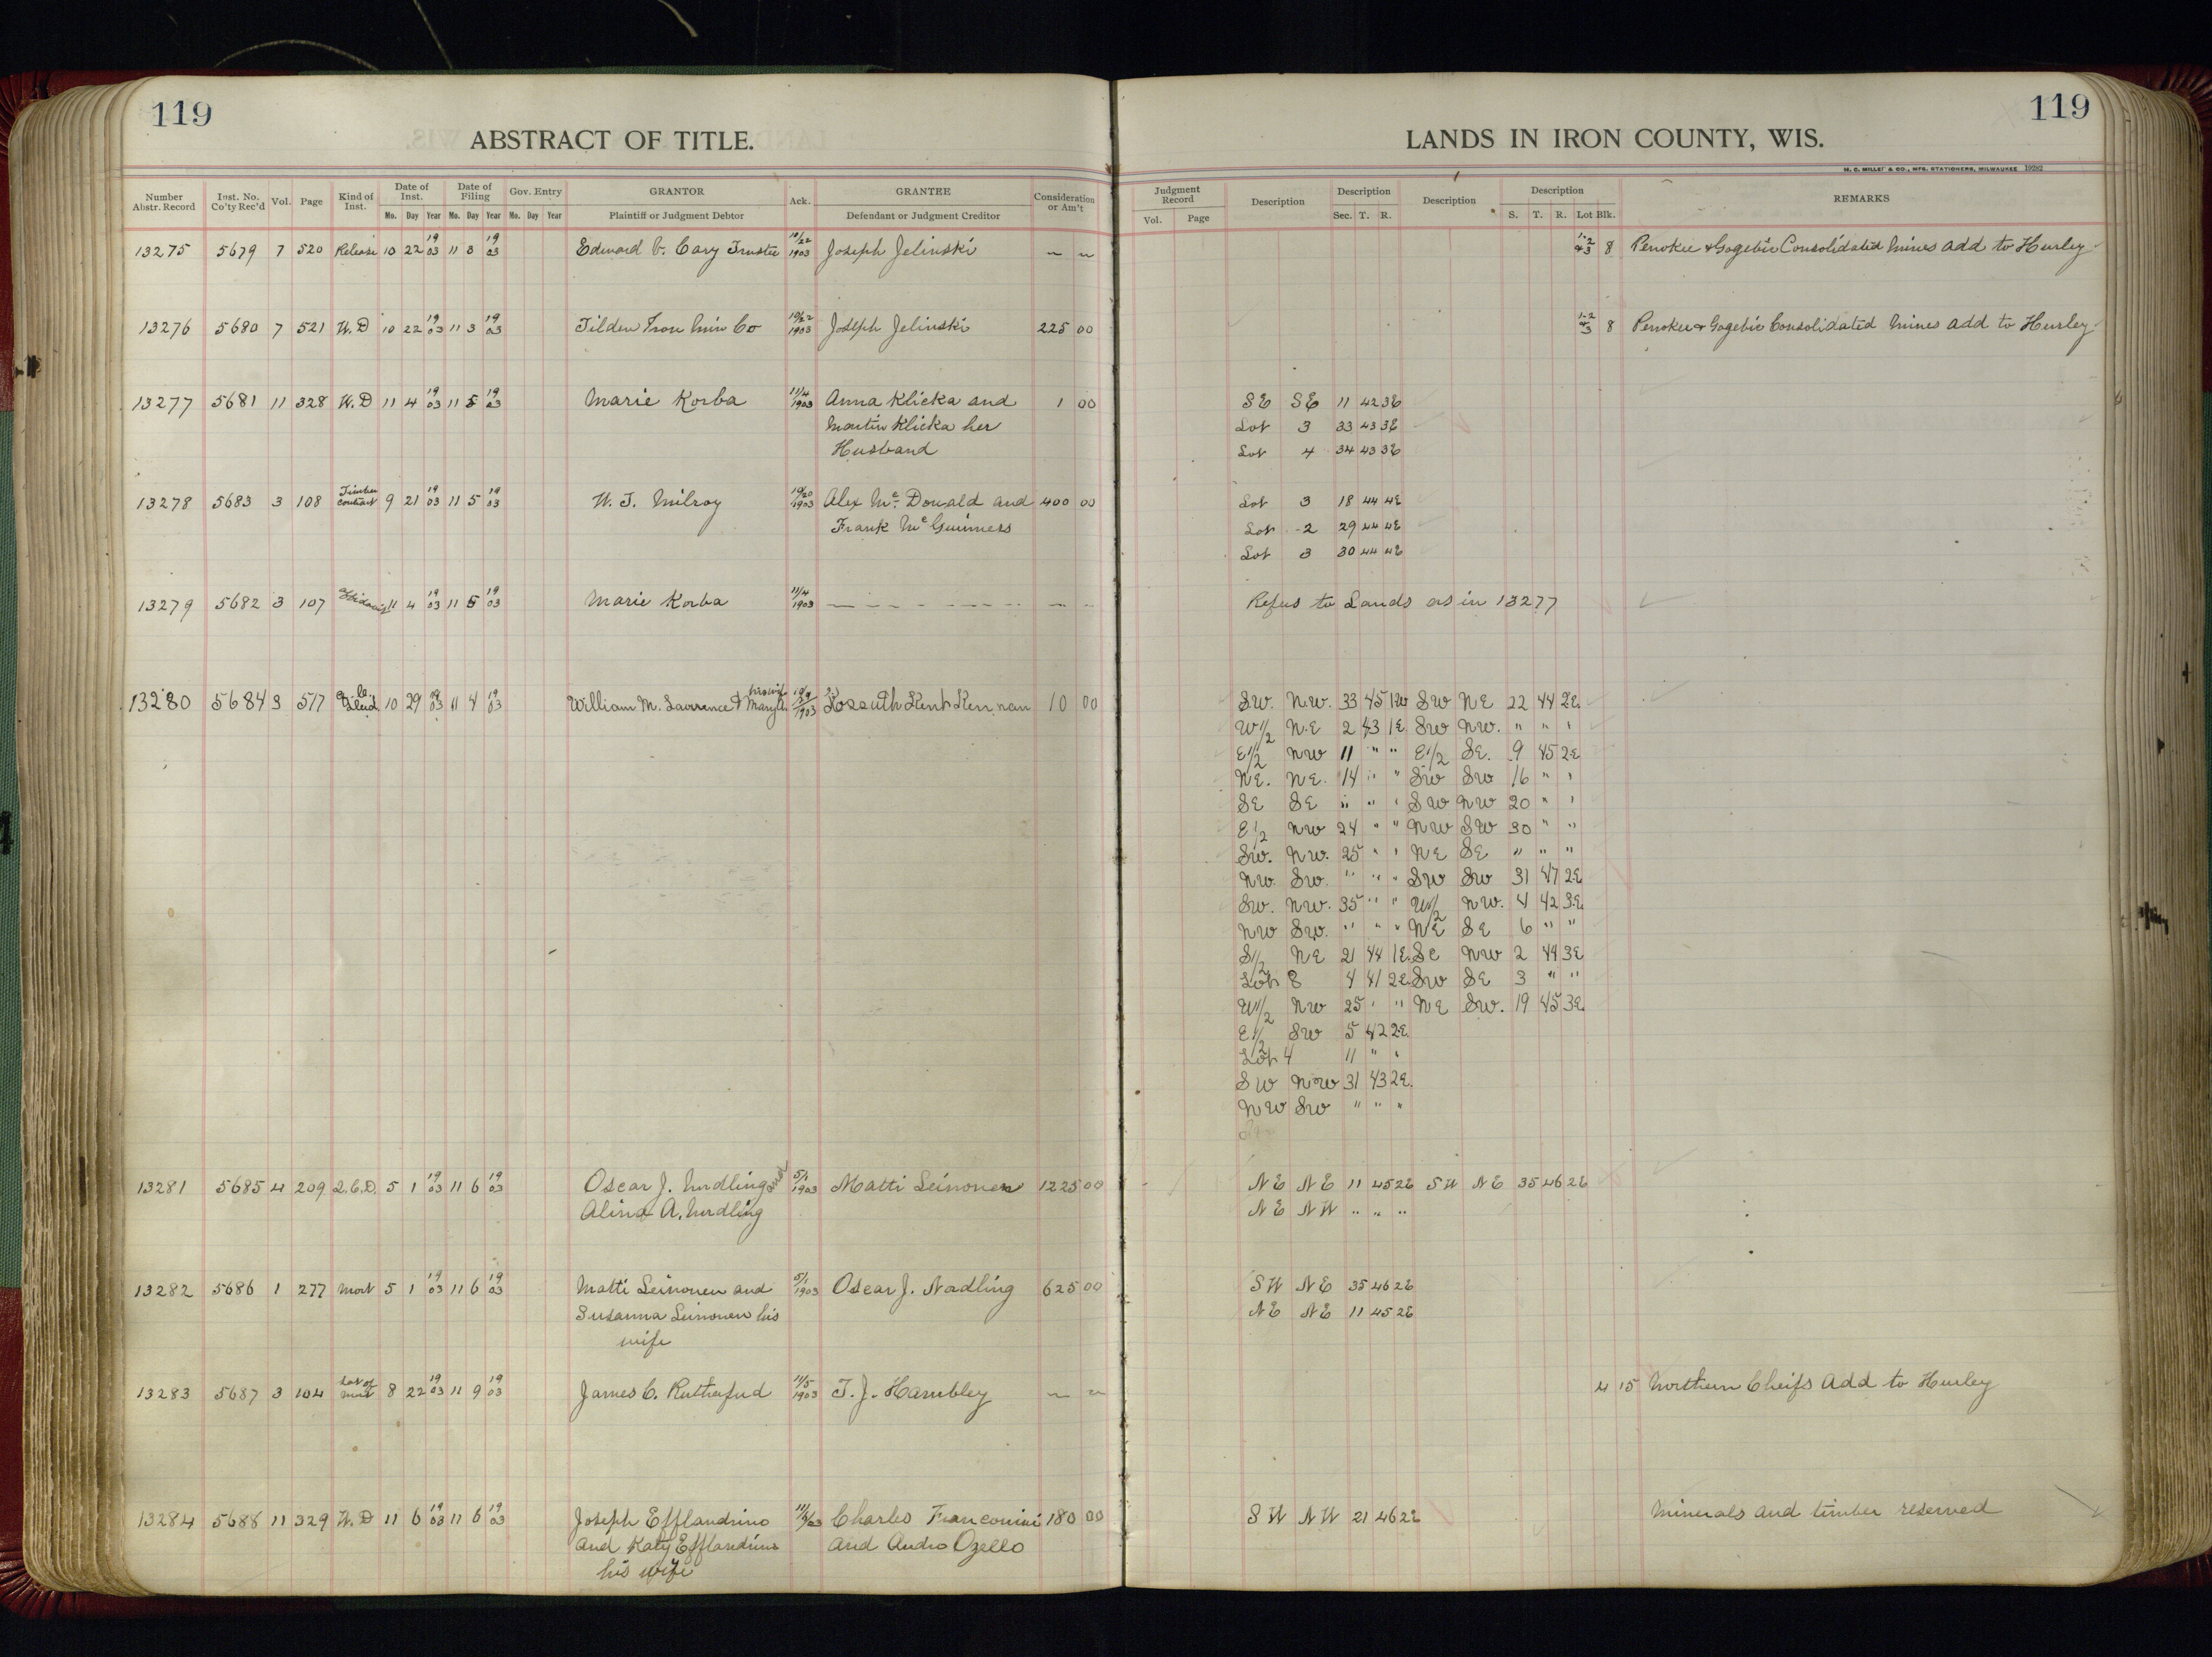 119
ABSTRACT OF TITLE.
LANDS IN IRON COUNTY, WIS.
119
H. C. MILLER & CO., MFG. STATIONERS, MILWAUKEE 19282
Number Abstr. Record Inst. No. Co'ty Rec'd Vol. Page Kind of Inst. Date of Inst. Date of Filing Gov. Entry GRANTOR Ack. GRANTEE Consideration or Am't Judgment Record Description Description Description Description REMARKS
Mo. Day Year Mo. Day Year Mo. Day Year Plaintiff or Judgment Debtor Defendant or Judgment Creditor Vol. Page Sec. T. R. S. T. R. Lot Blk.
13275 5679 7 520 Release 10 22 1903 11 3 1903 Edward C. Cary Trustee 10/22 1903 Joseph Jelinski ~ ~ 1-2 +3 8 Penokee & Gogebic Consolidated Mines Add to Hurley
13276 5680 7 521 W.D 10 22 1903 11 3 1903 Tilden Iron Min Co 10/22 1903 Joseph Jelinski 225 00 1-2 +3 8 Penokee & Gogebic Consolidated Mines Add to Hurley
13277 5681 11 328 W.D 11 4 1903 11 5 1903 Marie Korba 11/4 1903 Anna Klicka and 1 00 SE SE 11 42 3E
Martin Klicka her Lot 3 33 43 3E
Husband Lot 4 34 43 3E
13278 5683 3 108 Timber contract 9 21 1903 11 5 1903 W. J. Milroy 10/20 1903 Alex Mc Donald and 400 00 Lot 3 18 44 4E
Frank Mc Guinness Lot 2 29 44 4E
Lot 3 30 44 4E
13279 5682 3 107 Affidavit 11 4 1903 11 5 1903 Marie Korba 11/4 1903 Refers to Lands as in 13277
13280 5684 3 517 Q.C. Deed 10 29 1903 11 4 1903 William M. Lawrence & Mary A. his wife 1903 Kossuth Kent Kennan 10 00 SW. NW. 33 45 1W SW NE 22 44 2E.
W1/2 N.E 2 43 1E. SW NW. " " "
E1/2 NW 11 " " E1/2 SE. 9 45 2E
NE. NE. 14 " " SW SW 16 " "
SE SE " " " SW NW 20 " "
E1/2 NW 24 " " NW SW 30 " "
SW. NW. 25 " " NE SE " " "
NW. SW. " " " SW SW 31 47 2E
SW. NW. 35 " " W1/2 NW. 4 42 3E.
NW SW. " " " NE SE 6 " "
S1/2 NE 21 44 1E. SE NW 2 44 3E
Lot 8 4 41 2E. SW SE 3 " "
W1/2 NW 25 " " NE SW. 19 45 3E
E1/2 SW 5 42 2E.
Lot 4 11 " "
SW NW 31 43 2E.
NW SW " " "
13281 5685 4 209 Q.C.D. 5 1 1903 11 6 1903 Oscar J. Nordling and 5/1 1903 Matti Leinonen 1225 00 NE NE 11 45 2E SW NE 35 46 2E
Alina A. Nordling NE NW " " "
13282 5686 1 277 Mort 5 1 1903 11 6 1903 Matti Leinonen and 5/1 1903 Oscar J. Nordling 625 00 SW NE 35 46 2E
Susanna Leinonen his NE NE 11 45 2E
wife
13283 5687 3 104 Sat of Mort 8 22 1903 11 9 1903 James C. Rutherfud 11/5 1903 T. J. Hambley ~ ~ 4 15 Northern Cheifs Add to Hurley
13284 5688 11 329 W.D 11 6 1903 11 6 1903 Joseph Efflandrino 11/6/03 Charles Franconini 180 00 SW NW 21 46 2E Minerals and timber reserved
and Katy Efflandrino and Andro Ozello
his wife